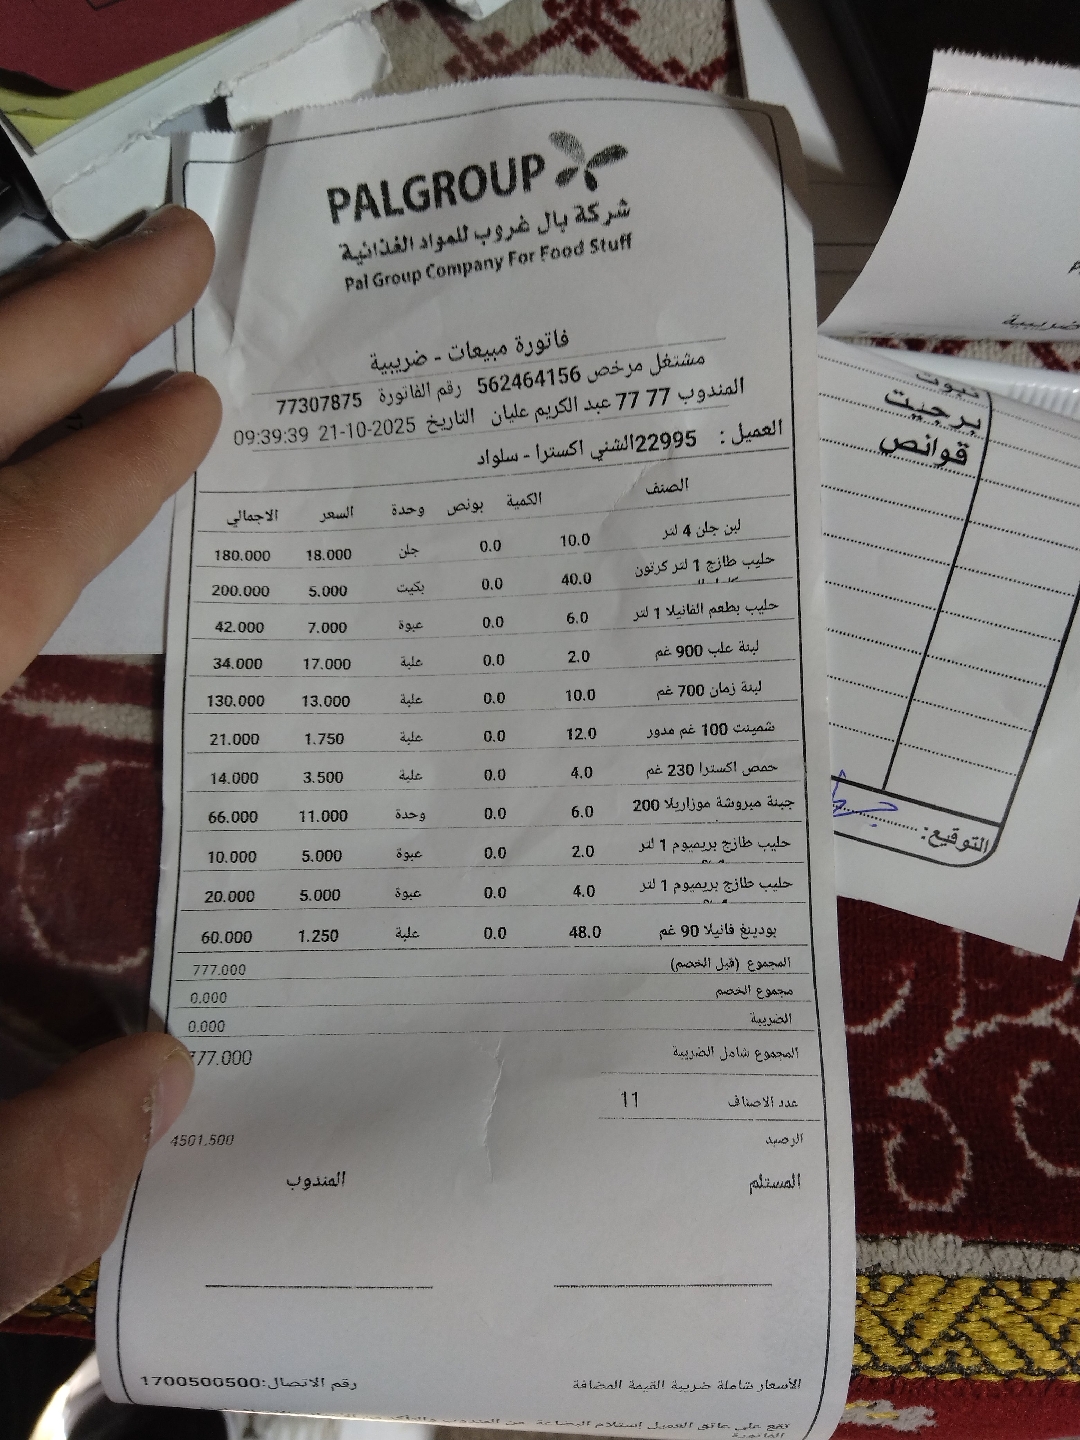 PALGROUP
شركة بال غروب للمواد الغذائية
Pal Group Company For Food Stuff
فاتورة مبيعات - ضريبية
مشتغل مرخص 562464156 رقم الفاتورة 77307875
المندوب 77 77 عبد الكريم عليان التاريخ 21-10-2025 09:39:39
العميل : 22995الشني اكسترا - سلواد
الصنف الكمية بونص وحدة السعر الاجمالي
لبن جلن 4 لتر 10.0 0.0 جلن 18.000 180.000
حليب طازج 1 لتر كرتون 40.0 0.0 بكيت 5.000 200.000
حليب بطعم الفانيلا 1 لتر 6.0 0.0 عبوة 7.000 42.000
لبنة علب 900 غم 2.0 0.0 علبة 17.000 34.000
لبنة زمان 700 غم 10.0 0.0 علبة 13.000 130.000
شمينت 100 غم مدور 12.0 0.0 علبة 1.750 21.000
حمص اكسترا 230 غم 4.0 0.0 علبة 3.500 14.000
جبنة مبروشة موزاريلا 200 6.0 0.0 وحدة 11.000 66.000
حليب طازج بريميوم 1 لتر 2.0 0.0 عبوة 5.000 10.000
حليب طازج بريميوم 1 لتر 4.0 0.0 عبوة 5.000 20.000
بودينغ فانيلا 90 غم 48.0 0.0 علبة 1.250 60.000
المجموع (قبل الخصم) 777.000
مجموع الخصم 0.000
الضريبة 0.000
المجموع شامل الضريبة 777.000
عدد الاصناف 11
الرصيد 4501.500
المستلم المندوب
الأسعار شاملة ضريبة القيمة المضافة رقم الاتصال:1700500500
تقع على عاتق العميل إستلام البضاعة
ضريبية
برجيت
قوانص
التوقيع: